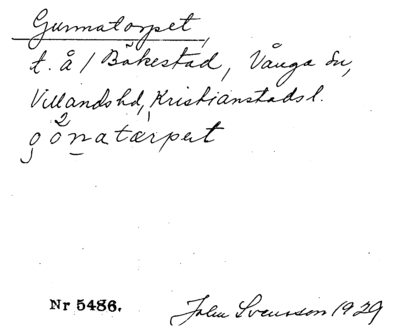 Gunnatorpet,
t. å / Bökestad, Vånga sn,
Villands hd, Kristianstads l.
g ²önatærpet
Nr 5486. John Svensson 1929